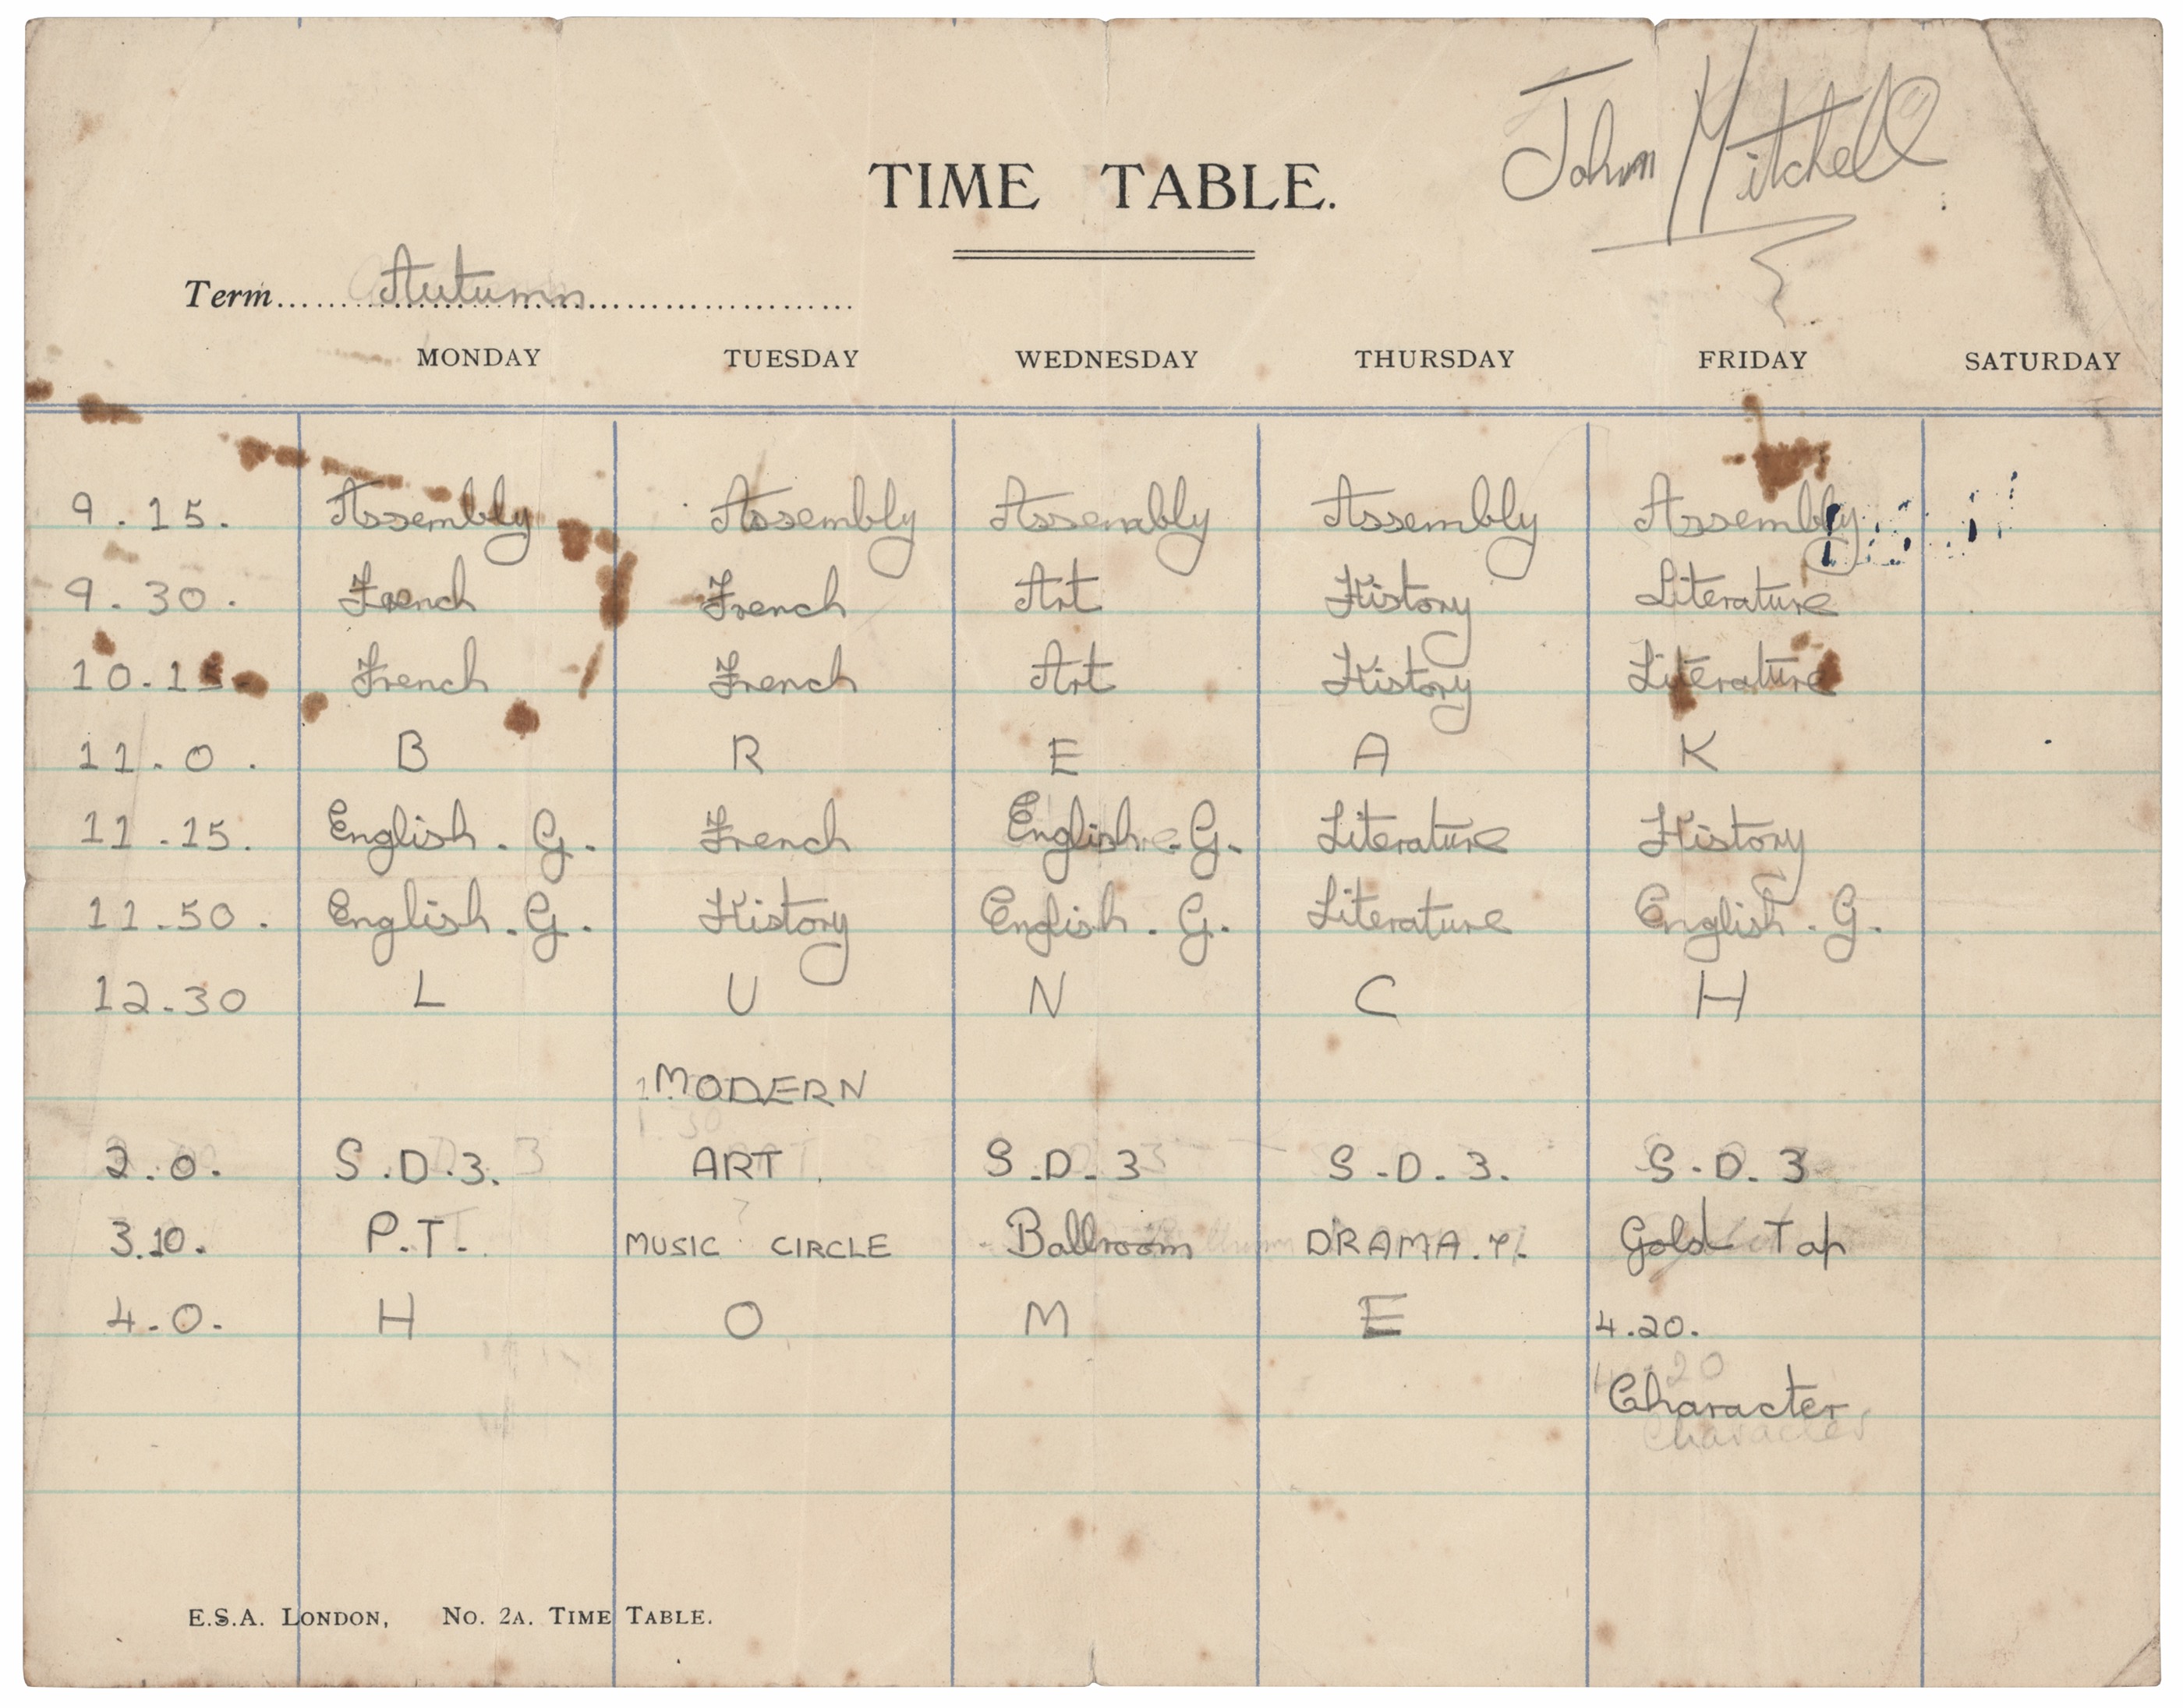 John Mitchell
TIME TABLE.
Term...... Autumn ......
MONDAY TUESDAY WEDNESDAY THURSDAY FRIDAY SATURDAY
9.15. Assembly Assembly Assembly Assembly Assembly
9.30. French French Art History Literature
10.15. French French Art History Literature
11.0. B R E A K
11.15. English.G. French English.G. Literature History
11.50. English.G. History English.G. Literature English.G.
12.30 L U N C H
MODERN
2.0. S.D.3. ART S.D.3 S.D.3. S.D.3
3.10. P.T. MUSIC CIRCLE Ballroom DRAMA. Gold Tap
4.0. H O M E 4.20.
4.20
Character
Character
E.S.A. LONDON, NO. 2A. TIME TABLE.